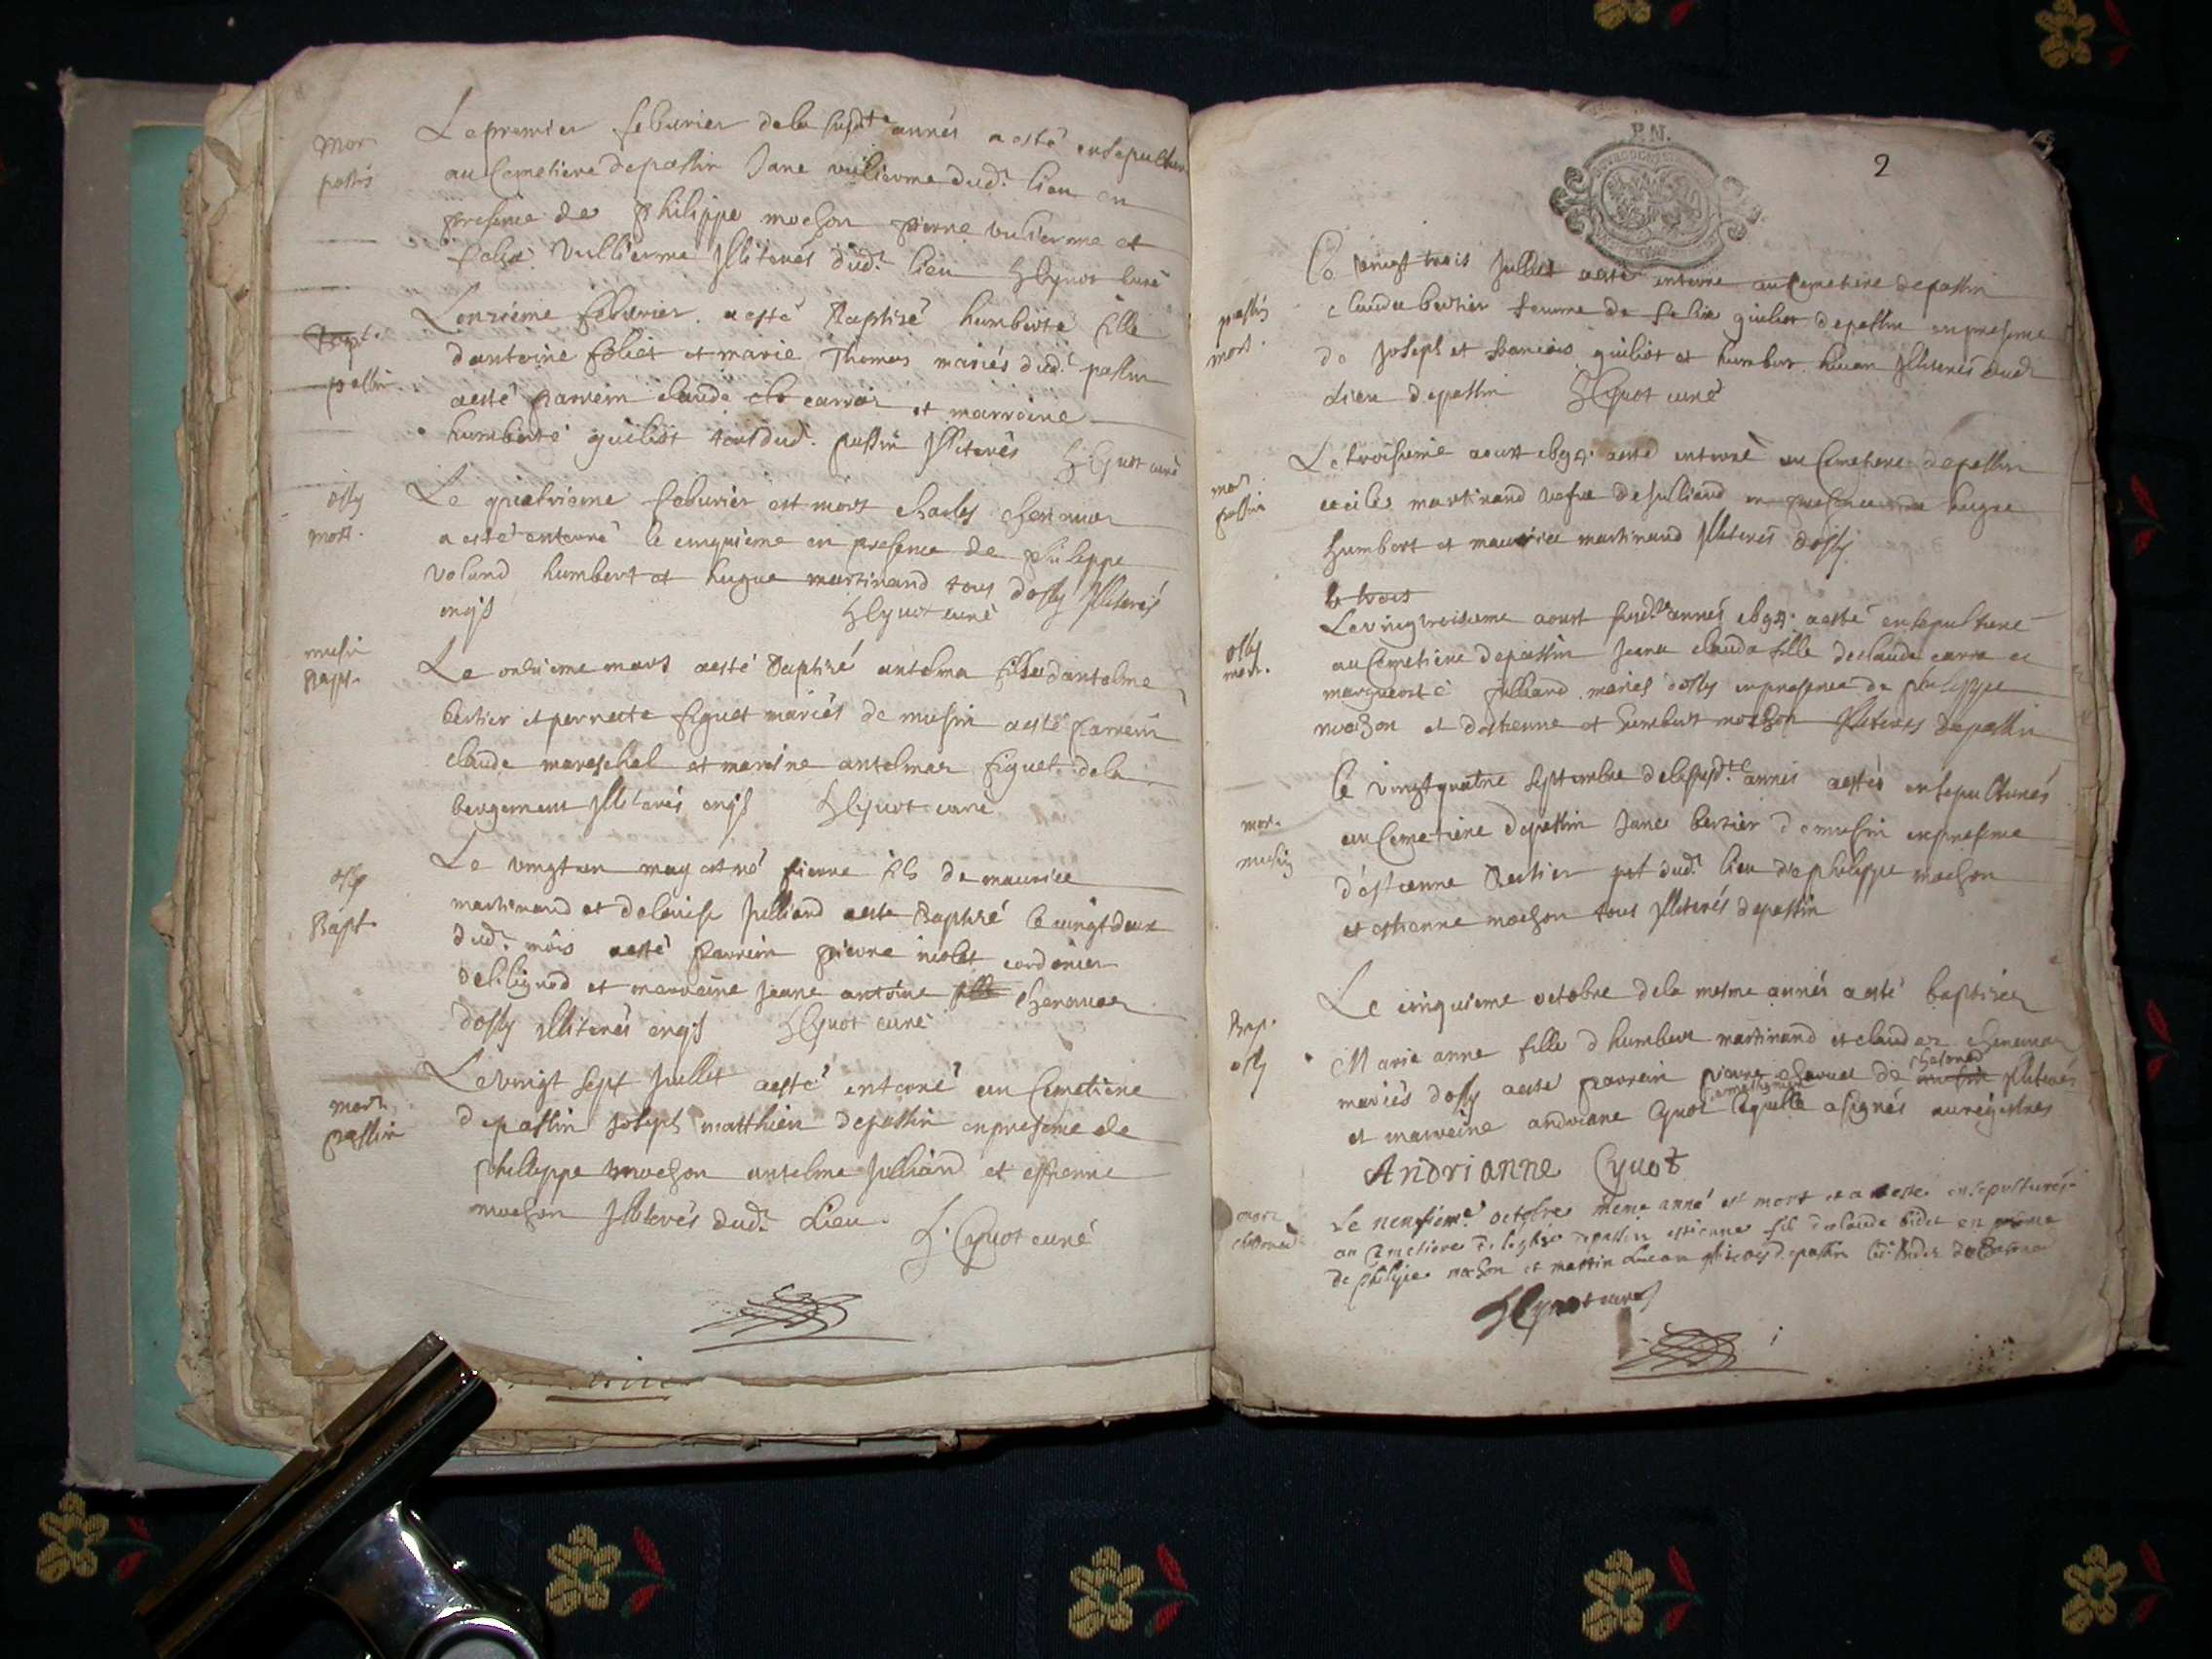 mort
passin
Le premier feburier de la susdte année a esté ensepulturé
au Cemetiere de passin Jane vulierme dud. lieu en
presence de philippe mochon pierre vulierme et
felix Vullierme Illiterés dud. lieu Cyvot curé
Bapt.
passin
Lonzième feburier a esté Baptisé humberte fille
dantoine foliet et marie Thomas mariés dud. passin
a esté parrein claude et marroine
humberte guiliot tous dud. passin Illiterés Cyvot curé
ossy
mort.
Le quatrieme feburier est mort charles chenavas
a esté enterré le cinquieme en presence de philippe
volund humbert et hugue martinand tous dossy Illiterés
enqs Cyvot curé
musin
Bapt.
Le onzieme mars a esté Baptisé antelma fille dantelme
bertier et pernette figuet mariés de musin a esté parrein
claude mareschal et marine antelmaz figuet de la
bergement Illiterés enqs Cyvot curé
ossy
Bapt.
Le vingt un may est né pierre fils de maurice
martinand et de louise Julliand a esté Baptisé le vingt deux
dud. mois a esté parrein pierre niolet cordonier
de lilignod et marreine Jeane antoine chenavaz
dossy Illiterés enqs Cyvot curé
mort
passin
Le vingt sept Juillet a esté enterré au Cemetiere
de passin Joseph matthieu de passin en presence de
philippe mochon antelme Julliand et estienne
mochon Illiterés dud. Lieu.
Cyvot curé
P.N.
2
passin
mort.
Le vingt trois Juillet a esté enterré au Cemetiere de passin
claudaz bertier femme de felix guiliot de passin en presence
de Joseph et francois guiliot et humbert Illiterés dud.
Lieu de passin Cyvot curé
mort
passin
Le troisieme aoust 1694 a esté enterré au Cemetiere de passin
cecile martinand vefve de Julliand en presence de hugue
humbert et maurice martinand Illiterés dossy
le trois
ossy
mort.
Le vingtroisieme aoust susdte année 1694 a esté ensepulturé
au Cemetiere de passin Jeana claude fille de claude carra et
marguerite Julliand mariés dossy en presence de philippe
mochon et destienne et humbert mochon Illiterés de passin
mort.
musin
Le vingtquatre septembre de la susd.te année a esté ensepulturé
au Cemetiere de passin Jane bertier de musin en presence
destienne Bertier dud. lieu de philippe mochon
et estienne mochon tous Illiterés de passin
Bap.
ossy
Le cinquieme octobre de la mesme année a esté baptisée
Marie anne fille d humbert martinand et claudaz chenavaz
chasonod
mariés dossy a esté parrein pierre charvet de musin Illiterés
et marreine andriane Cyvot laquelle a signés au registres
Andrianne Cyvot
mort
chasonod
Le neufieme octobre meme anné est mort et a esté ensepulturés
au Cemetiere de leglise de passin estienne fils de claude bidet en
de philipe mochon et martin de passin led. bidet de chasonod
Cyvot curé